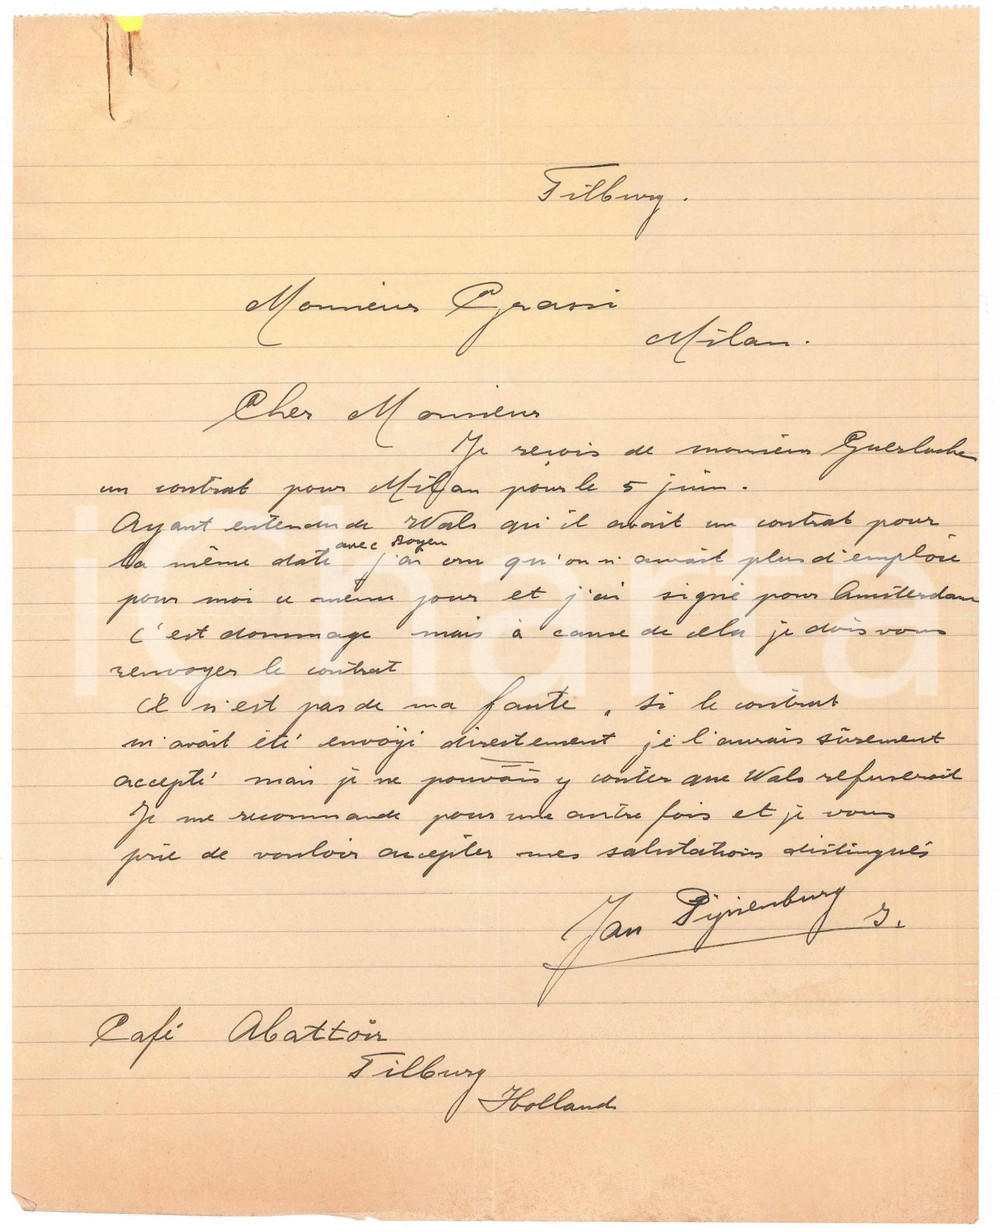 Tilburg.
Monsieur Grassi
Milan.
Cher Monsieur
Je reçois de monsieur Guerlache
un contrat pour Milan pour le 5 juin.
Ayant entendu de Wals qu'il avait un contrat pour
la même date avec Boyen j'ai cru qu'on n'aurait plus d'emploie
pour moi ce même jour et j'ai signé pour Amsterdam
C'est dommage mais à cause de cela je dois vous
renvoyer le contrat
Il n'est pas de ma faute, si le contrat
m'avait été envoyé directement je l'aurais sûrement
accepté mais je ne pouvais y conter que Wals refuserait
Je me recommande pour une autre fois et je vous
prie de vouloir accepter mes salutations distingués
Jan Pijnenburg
Café Abattoir
Tilburg
Holland
iCharta